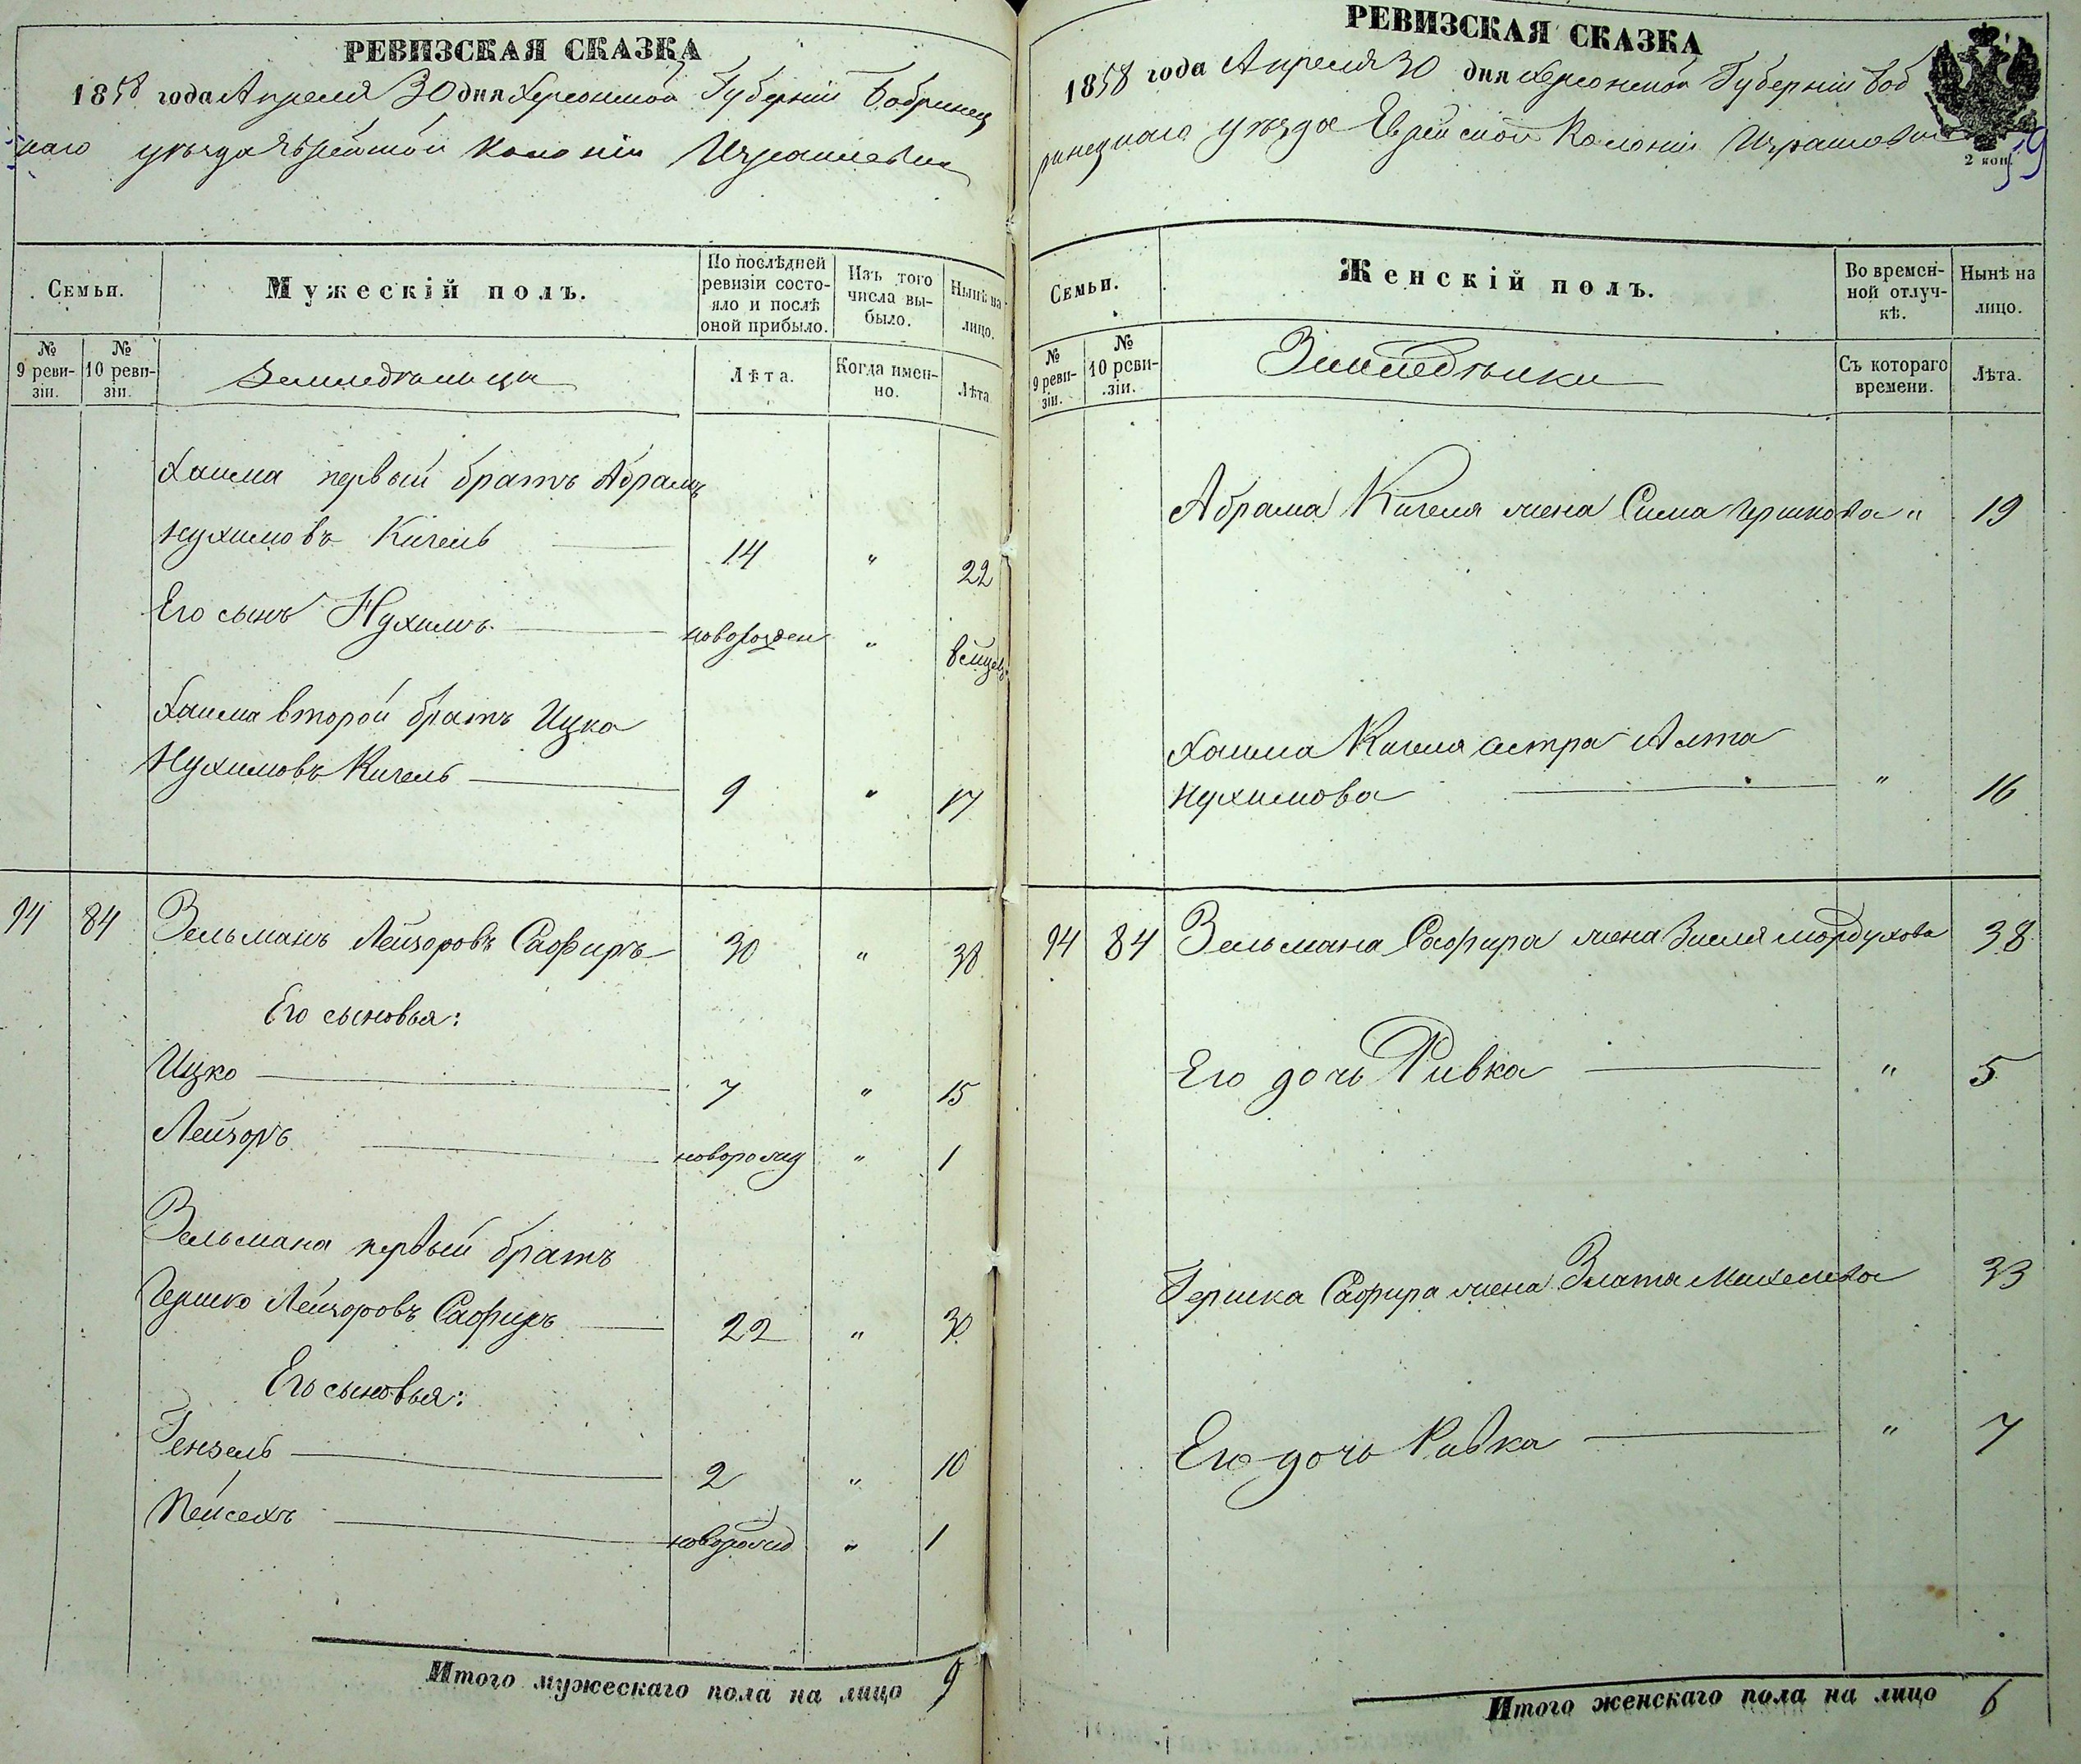 РЕВИЗСКАЯ СКАЗКА
1858 года Апреля 30 дня Херсонской Губерніи Бобринец
каго уѣзда Еврейской Колоніи Израилевки
Семьи.
Мужескій полъ.
По послѣдней ревизіи состояло и послѣ оной прибыло.
Изъ того числа выбыло.
Нынѣ на лицо.
№ 9 ревизіи.
№ 10 ревизіи.
Земледѣльцы
Лѣта.
Когда именно.
Лѣта
Хаима первый братъ Абрамъ
Нухимовъ Кигель 14 " 22
Его сынъ Нухимъ новорожден "
Хаима второй братъ Ицко
Нухимовъ Кигель 9 " 17
94 84 Зельманъ Лейзоровъ Сафиръ 30 " 38
Его сыновья:
Ицко 7 " 15
Лейзоръ новорожд " 1
Зельмана первый братъ
Гершко Лейзоровъ Сафиръ 22 " 30
Его сыновья:
Гензель 2 " 10
Пейсехъ новорожд " 1
Итого мужескаго пола на лицо 9
РЕВИЗСКАЯ СКАЗКА
1858 года Апреля 30 дня Херсонской Губерніи Боб
ринецкаго уѣзда Еврейской Колоніи Израилевки
2 коп.
59
Семьи.
Женскій полъ.
Во временной отлучкѣ.
Нынѣ на лицо.
№ 9 ревизіи.
№ 10 ревизіи.
Земледѣлки
Съ котораго времени.
Лѣта.
Абрама Кигеля жена Сима Гершкова " 19
Хаима Кигеля сестра Алта
Нухимова " 16
94 84 Зельмана Сафира жена Зисля Мордухова 38
Его дочь Ривка " 5
Гершка Сафира жена Злата Михелева 33
Его дочь Ривка " 7
Итого женскаго пола на лицо 6